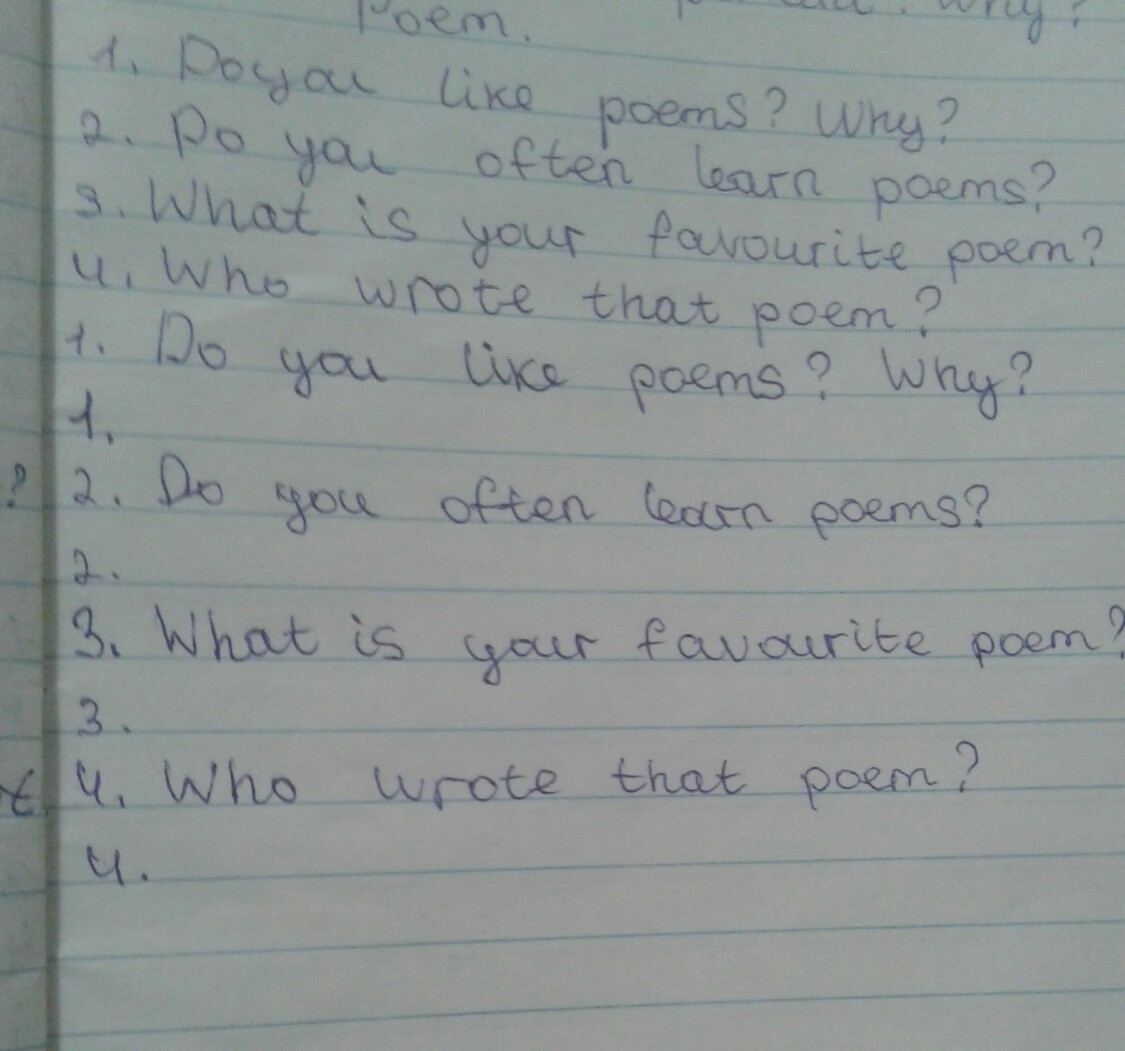 Poem. Why?
1. Do you like poems? Why?
2. Do you often learn poems?
3. What is your favourite poem?
4. Who wrote that poem?
1. Do you like poems? Why?
1.
? 2. Do you often learn poems?
2.
3. What is your favourite poem?
3.
t. 4. Who wrote that poem?
4.